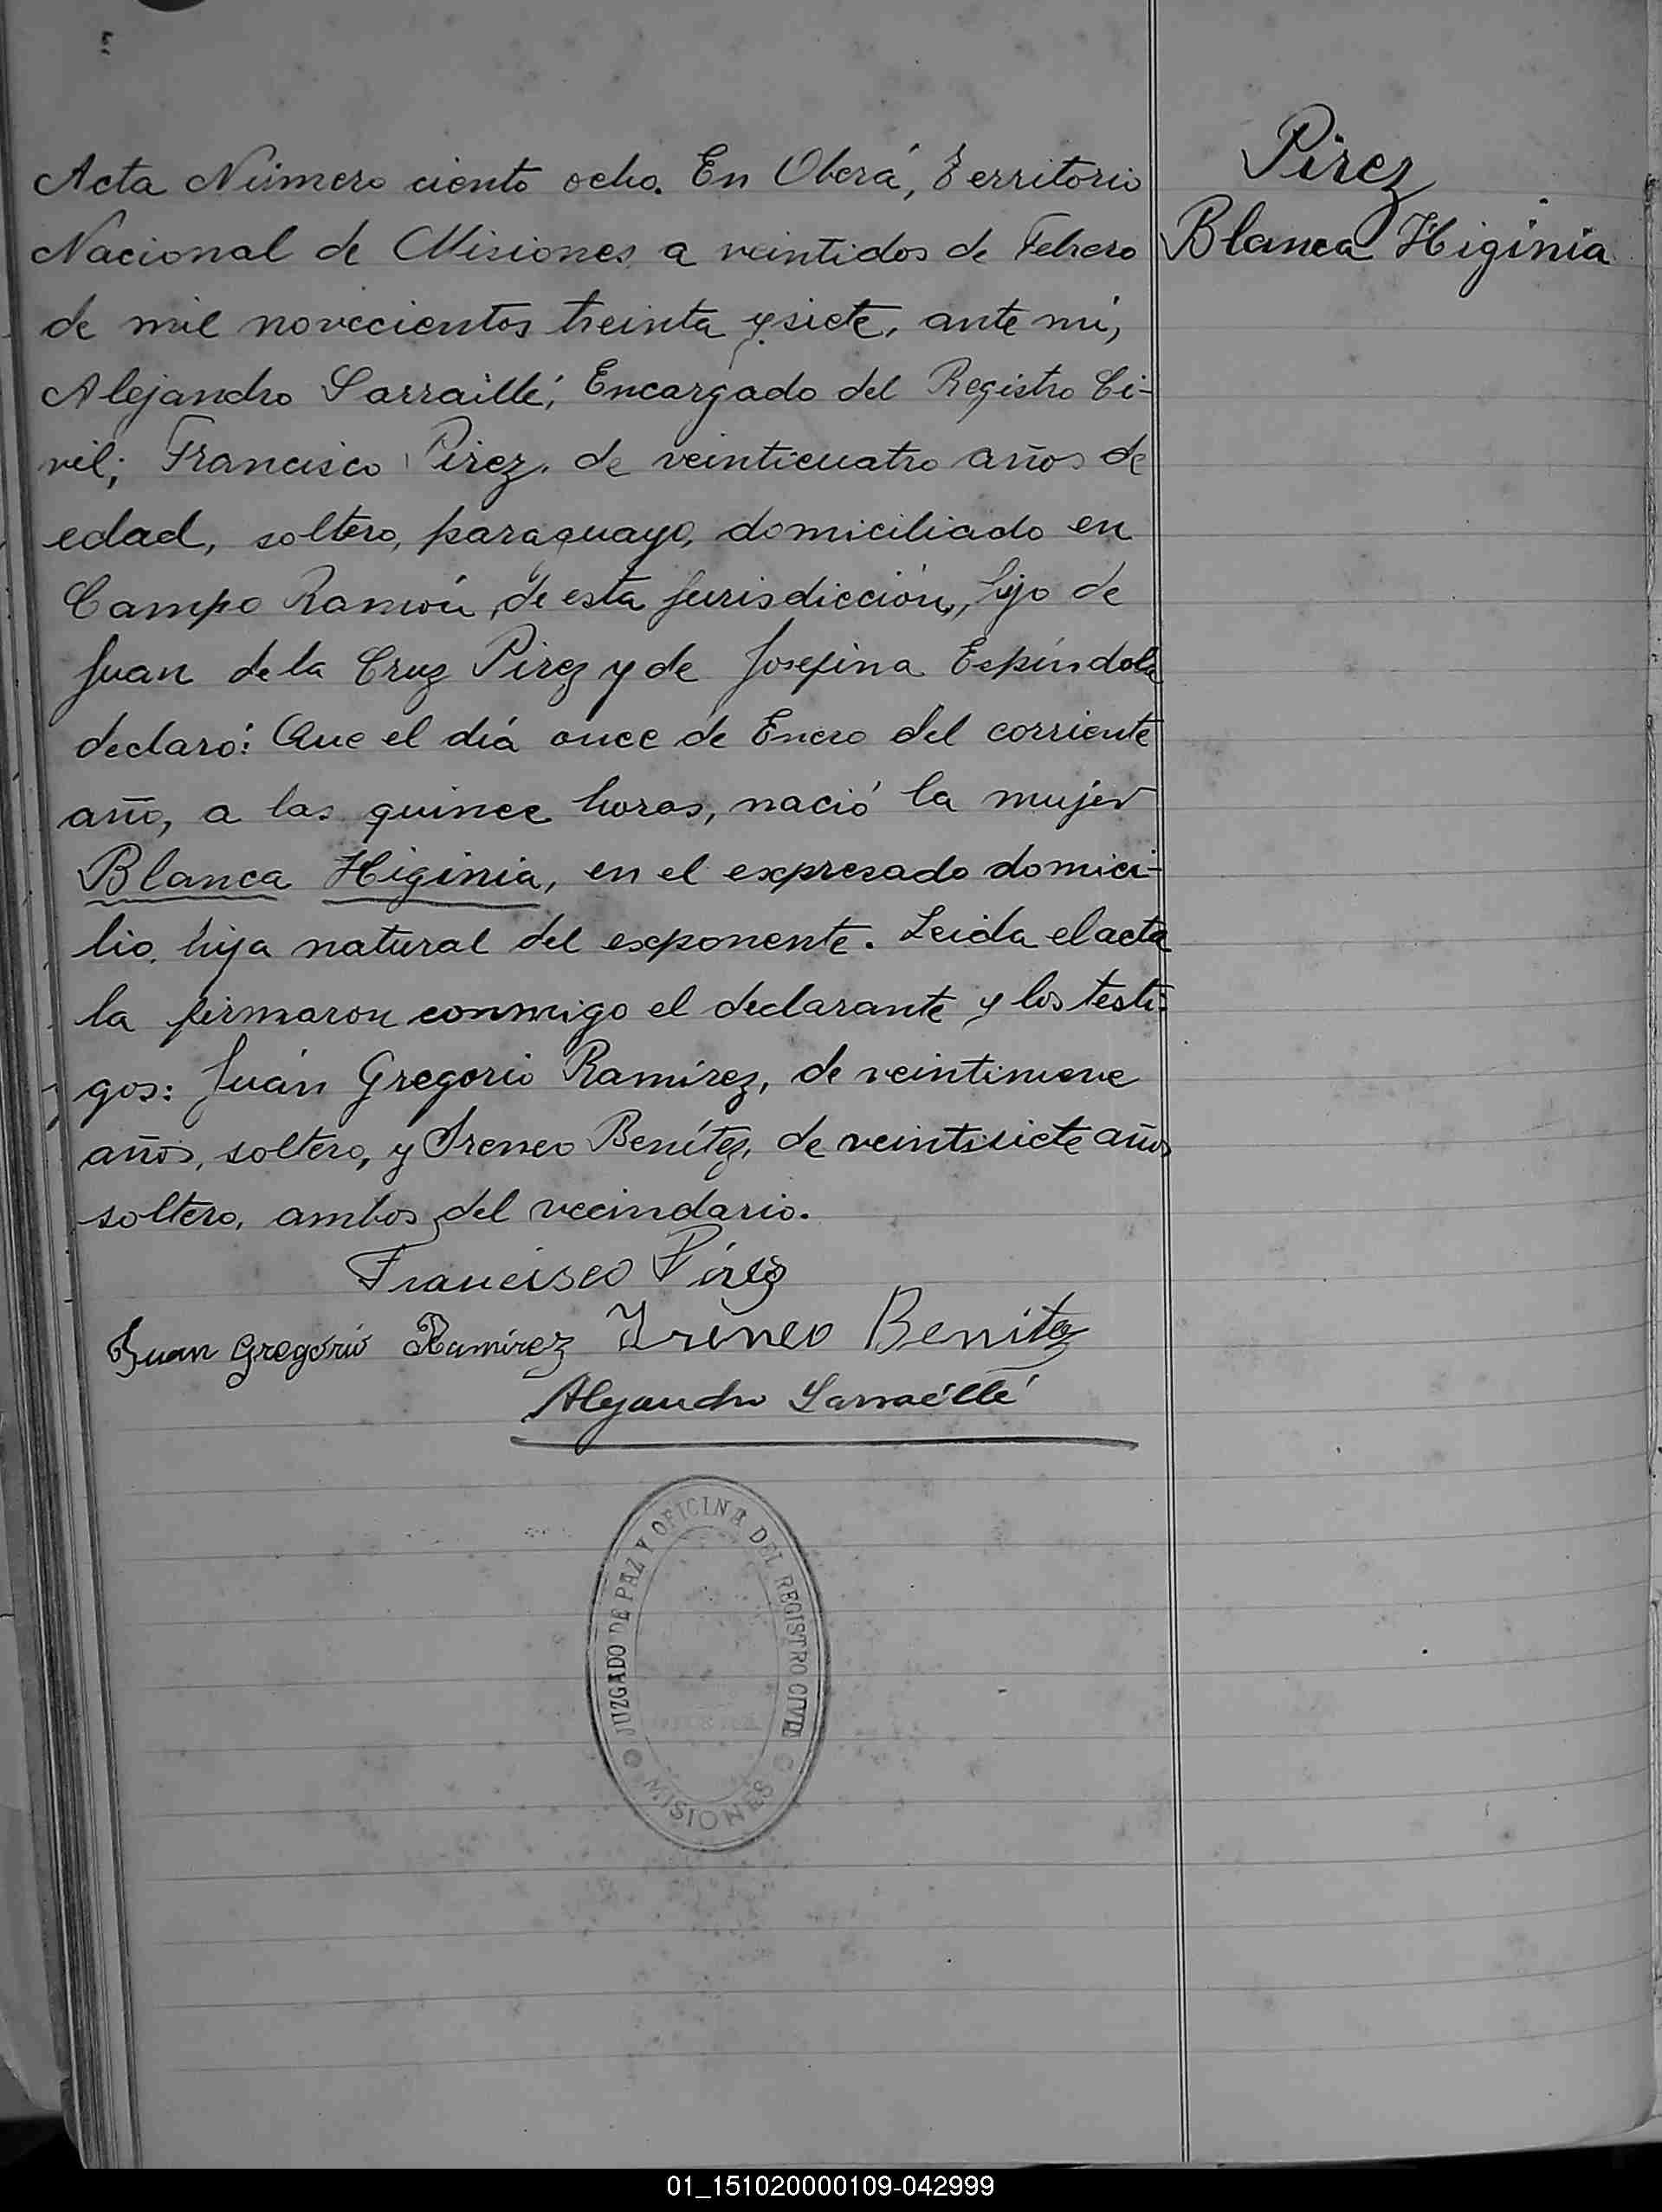 Pirez
Blanca Higinia
Acta Número ciento ocho. En Oberá, Territorio
Nacional de Misiones a veintidos de Febrero
de mil novecientos treinta y siete, ante mí,
Alejandro Sarraillé, Encargado del Registro Ci-
vil; Francisco Pirez, de veinticuatro años de
edad, soltero, paraguayo, domiciliado en
Campo Ramón, de esta jurisdicción, hijo de
Juan de la Cruz Pirez y de Josefina Espíndola
declaró: Que el día once de Enero del corriente
año, a las quince horas, nació la mujer
Blanca Higinia, en el expresado domici-
lio, hija natural del exponente. Leida el acta
la firmaron conmigo el declarante y los testi-
gos: Juan Gregorio Ramírez, de veintinueve
años, soltero, y Ireneo Benítez, de veintisiete años
soltero, ambos del vecindario.
Francisco Pírez
Juan Gregorio Ramírez Ireneo Benítez
Alejandro Sarraillé
JUZGADO DE PAZ Y OFICINA DEL REGISTRO CIVIL
MISIONES
01_151020000109-042999